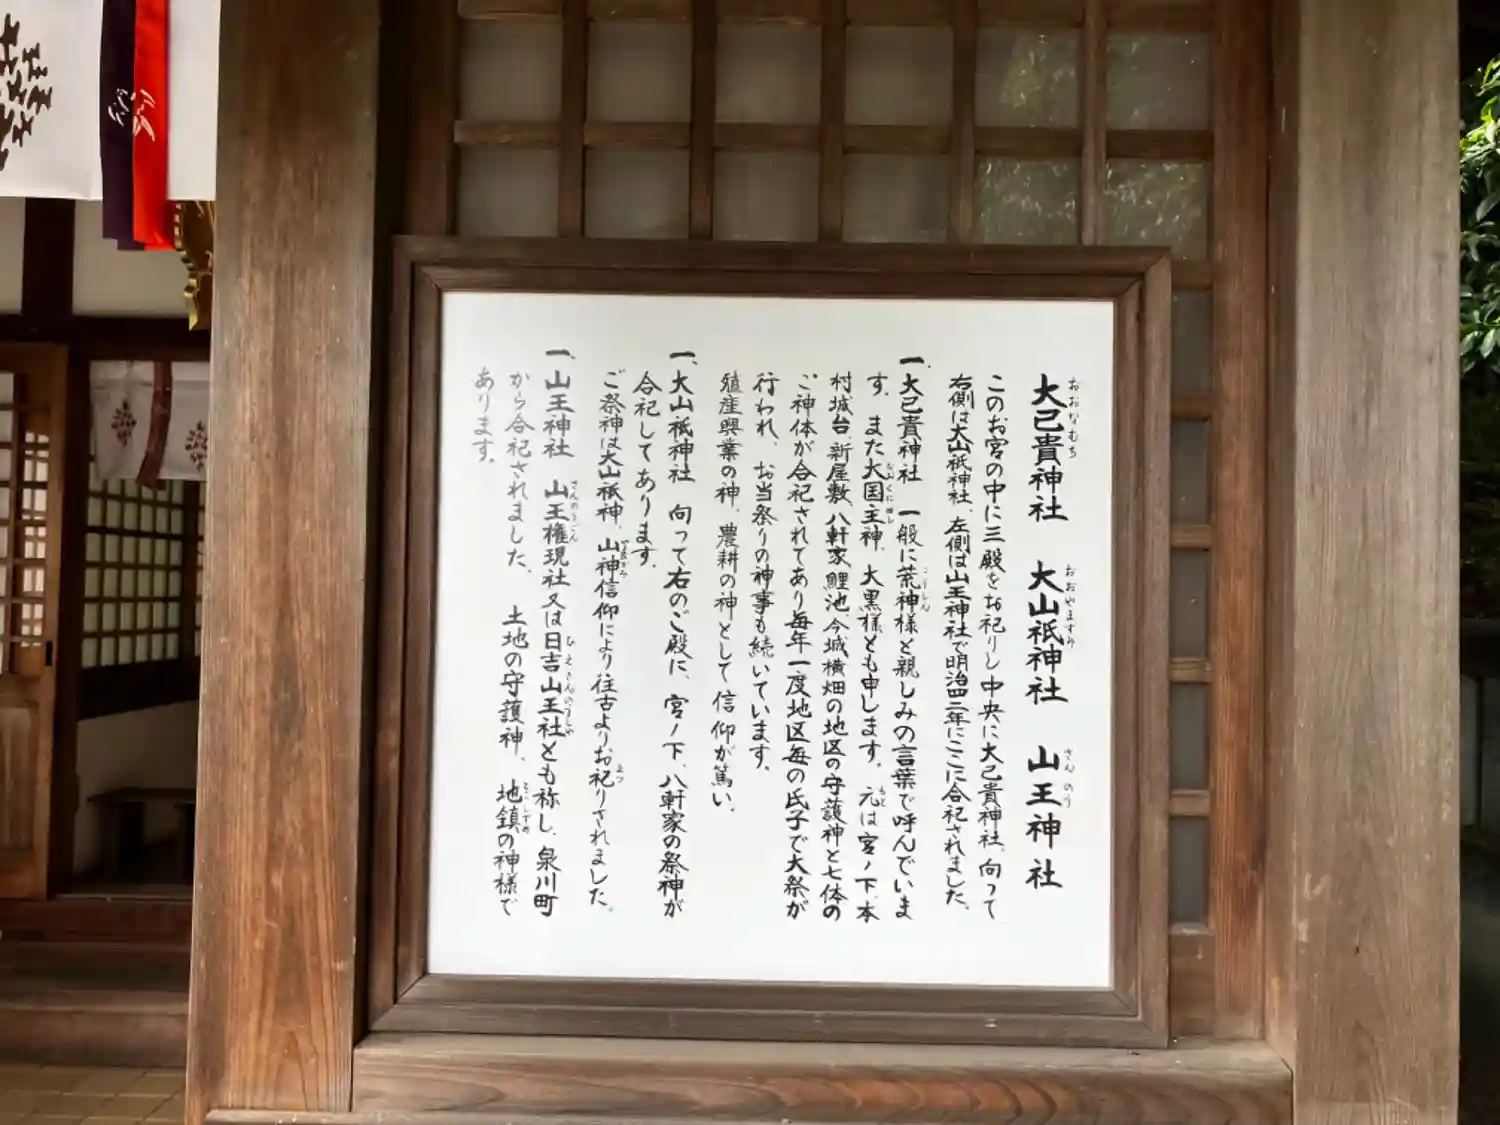 大己貴神社　大山祇神社　山王神社
このお宮の中に三殿をお祀りし中央に大己貴神社、向って
右側は大山祇神社、左側は山王神社で明治四二年にここに合祀されました。
一、大己貴神社　一般に荒神様と親しみの言葉で呼んでいま
す。また大国主神、大黒様とも申します。元は宮ノ下、本
村城台、新屋敷、八軒家、鯉池、今城、横畑の地区の守護神と七体の
ご神体が合祀されてあり毎年一度地区毎の氏子で大祭が
行われ、お当祭りの神事も続いています。
殖産興業の神、農耕の神として信仰が篤い。
一、大山祇神社　向って右のご殿に、宮ノ下、八軒家の祭神が
合祀してあります。
ご祭神は大山祇神、山神信仰により往古よりお祀りされました。
一、山王神社　山王権現社又は日吉山王社とも称し、泉川町
から合祀されました。　土地の守護神、地鎮の神様で
あります。